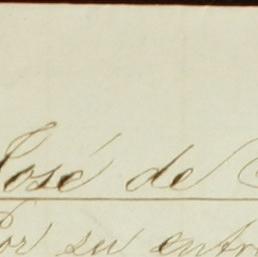 José de
Por su entr